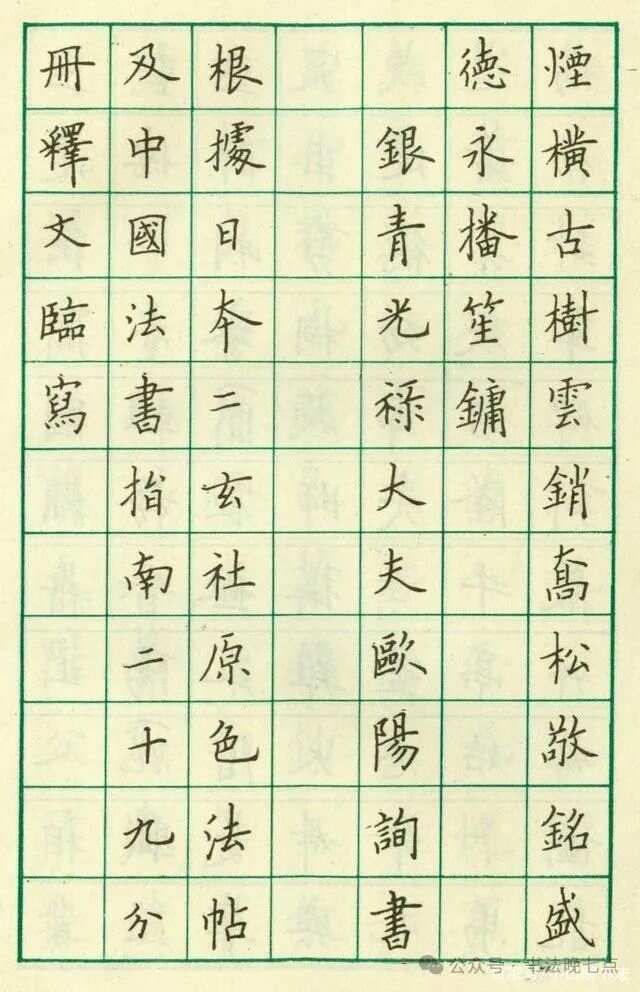 煙橫古樹雲銷喬松敬銘盛
德永播笙鏞
銀青光祿大夫歐陽詢書
根據日本二玄社原色法帖
及中國法書指南二十九分
冊釋文臨寫
公众号·书法晚七点